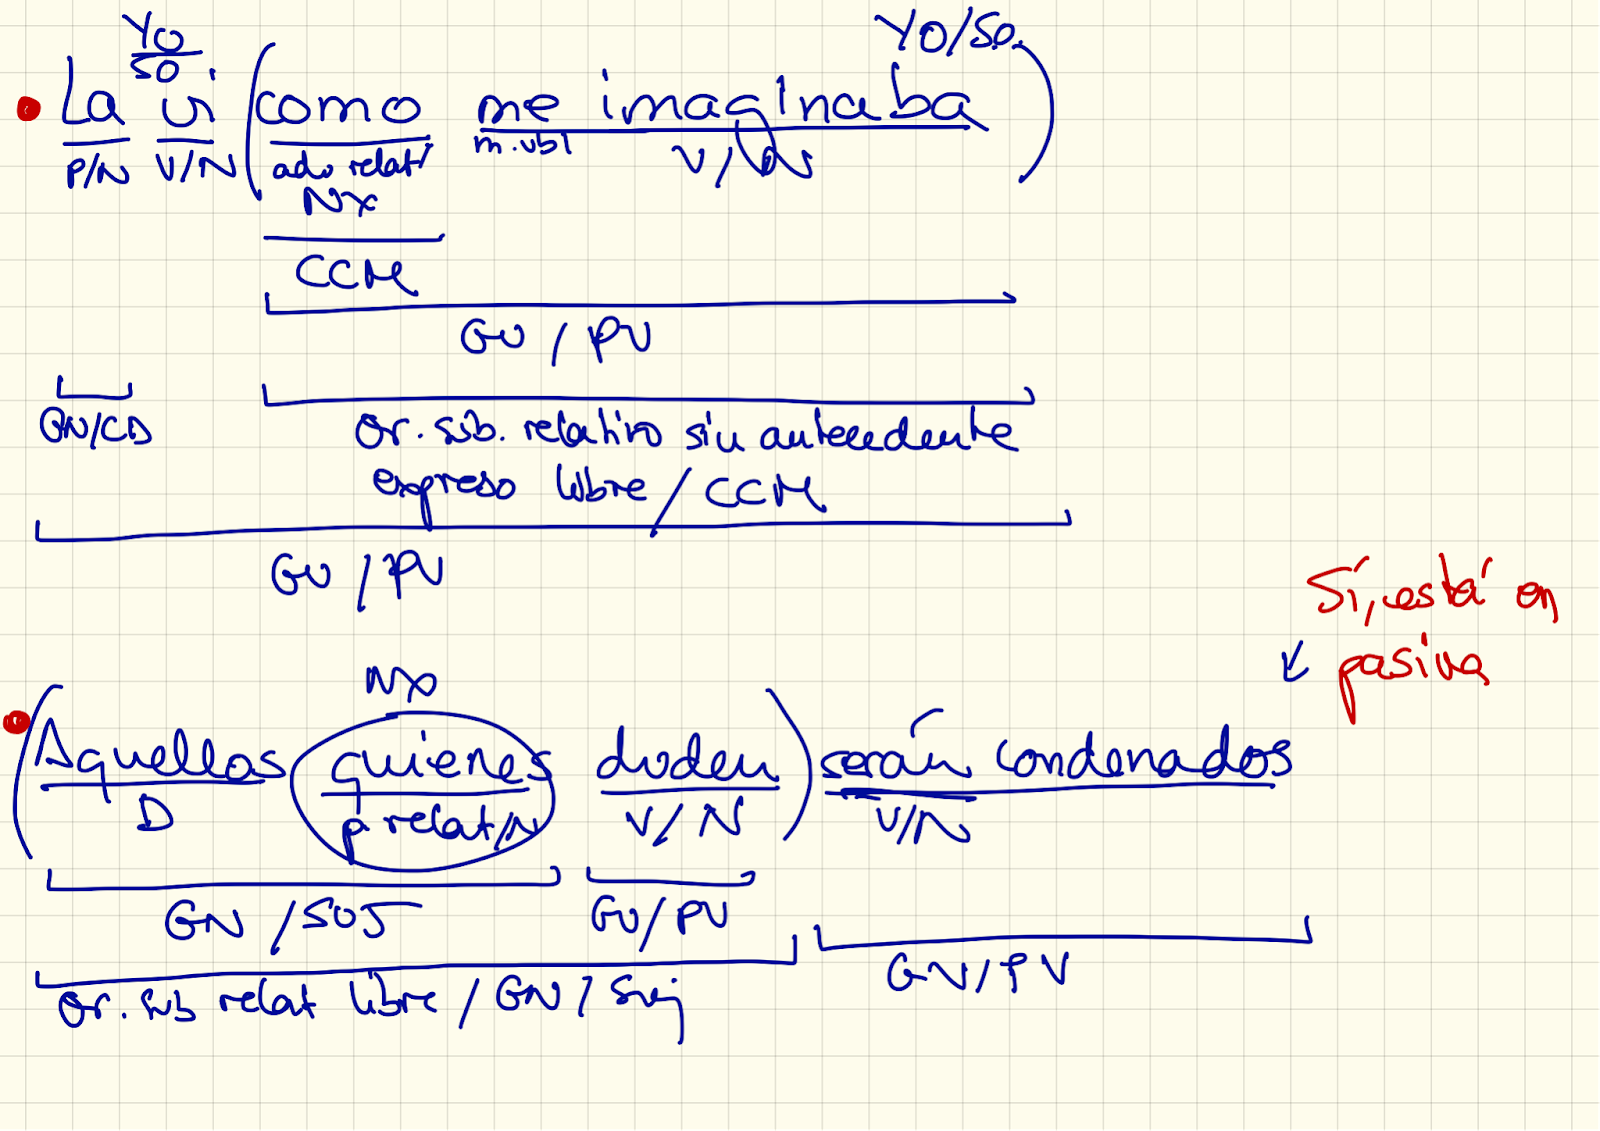 YO YO/SO.
SO
La vi (como me imaginaba)
P/N V/N adv relat m.vbl V/N
Nx
CCM
GV / PV
GN/CD or. sub. relativo sin antecedente
expreso libre / CCM
GV / PV
Sí, está en
pasiva
Nx
(Aquellos quienes duden) serán condenados
D p relat/N V/N V/N
GN / SUJ GV/PV
GV/PV
or. sub relat libre / GN / Suj